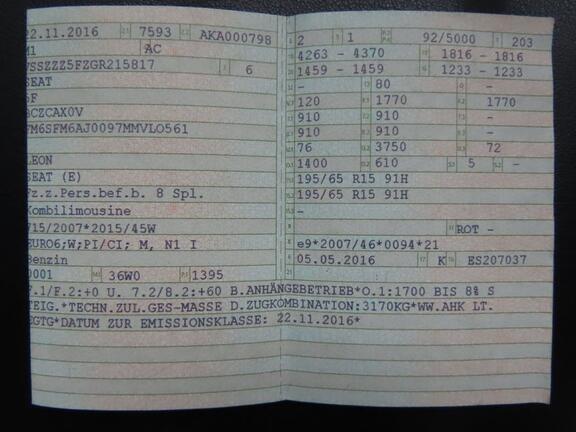 22.11.2016 7593 AKA000798
M1 AC
VSSZZZ5FZGR215817 6
SEAT
5F
ACZCAX0V
FM6SFM6AJ0097MMVLO561
LEON
SEAT (E)
Fz.z.Pers.bef.b. 8 Spl.
Kombilimousine
715/2007*2015/45W
EURO6;W;PI/CI; M, N1 I
Benzin
0001 36W0 1395
2 1 92/5000 203
4263 - 4370 1816 - 1816
1459 - 1459 1233 - 1233
- 80 -
120 1770 1770
910 910 -
910 910 -
76 3750 72
1400 610 5 -
195/65 R15 91H
195/65 R15 91H
-
ROT -
e9*2007/46*0094*21
05.05.2016 K ES207037
F.1/F.2:+0 U. 7.2/8.2:+60 B.ANHÄNGEBETRIEB*O.1:1700 BIS 8% S
TEIG.*TECHN.ZUL.GES-MASSE D.ZUGKOMBINATION:3170KG*WW.AHK LT.
EGTG*DATUM ZUR EMISSIONSKLASSE: 22.11.2016*